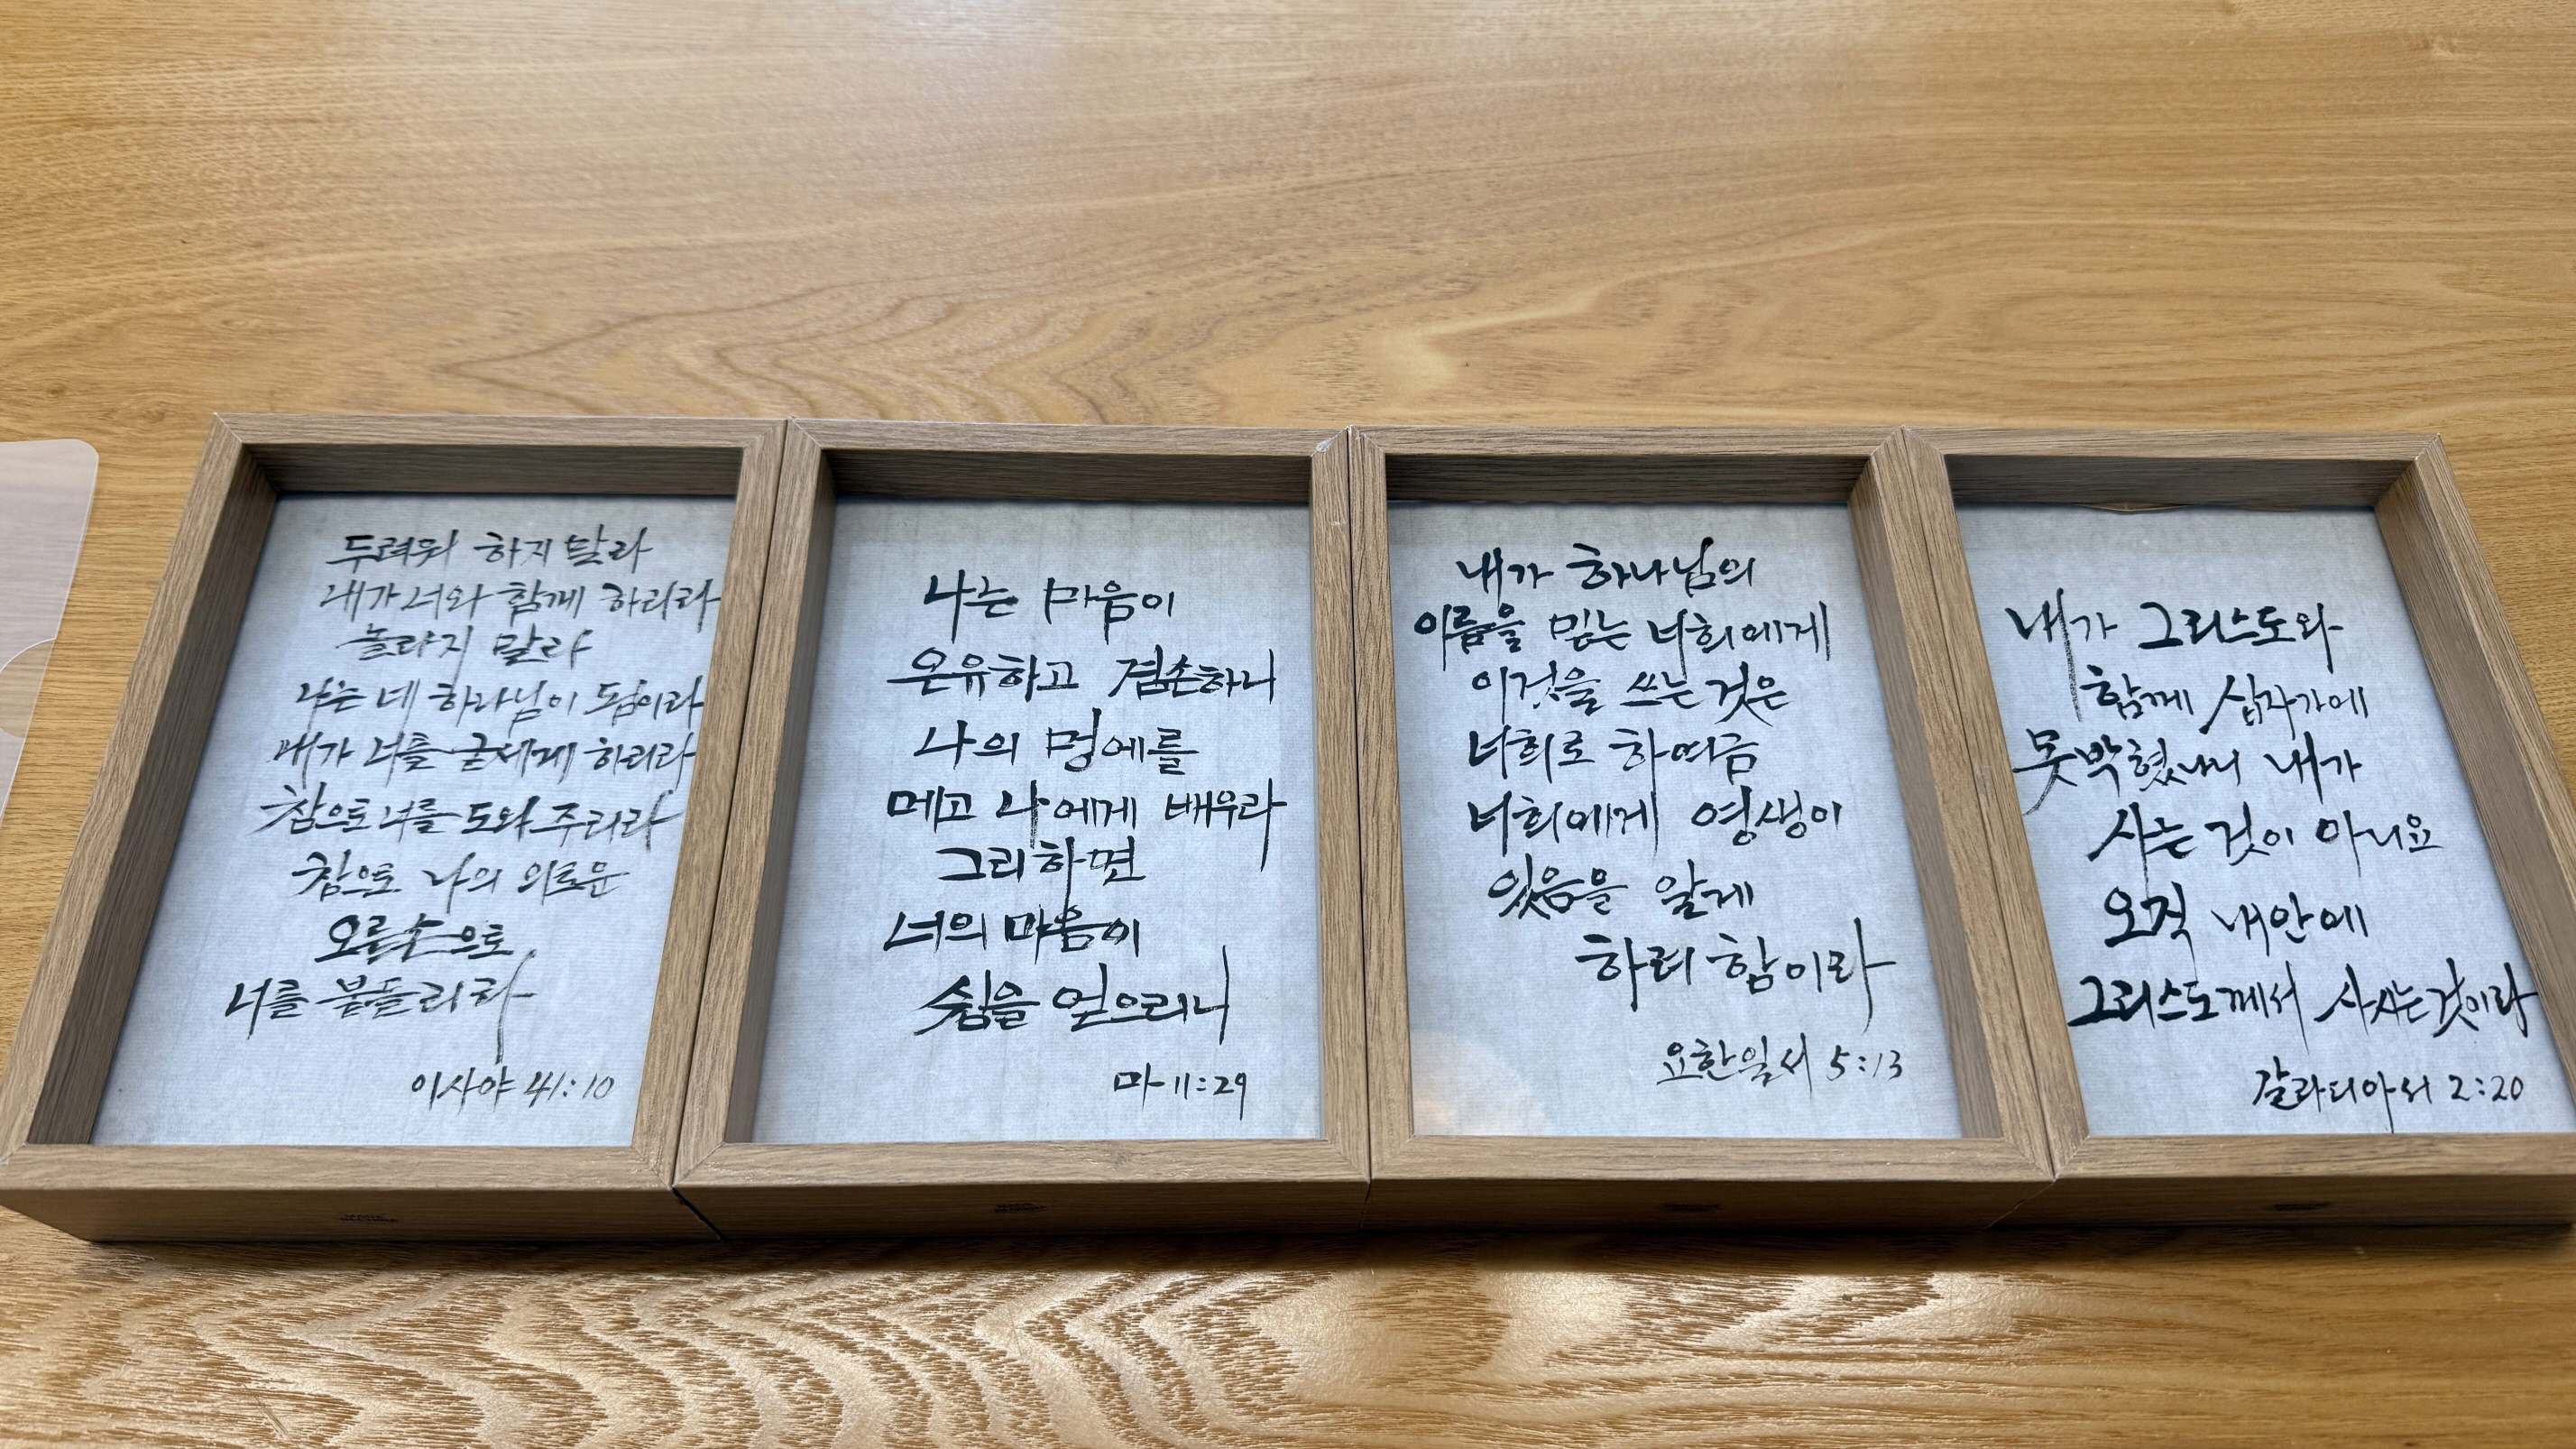 두려워 하지 말라
내가 너와 함께 하리라
놀라지 말라
나는 네 하나님이 됨이라
내가 너를 굳세게 하리라
참으로 너를 도와 주리라
참으로 나의 의로운
오른손으로
너를 붙들리라
이사야 41:10
나는 마음이
온유하고 겸손하니
나의 멍에를
메고 나에게 배우라
그리하면
너의 마음이
쉼을 얻으리니
마 11:29
내가 하나님의
이름을 믿는 너희에게
이것을 쓰는 것은
너희로 하여금
너희에게 영생이
있음을 알게
하려 함이라
요한일서 5:13
내가 그리스도와
함께 십자가에
못박혔나니 내가
사는 것이 아니요
오직 내안에
그리스도께서 사시는것이라
갈라디아서 2:20